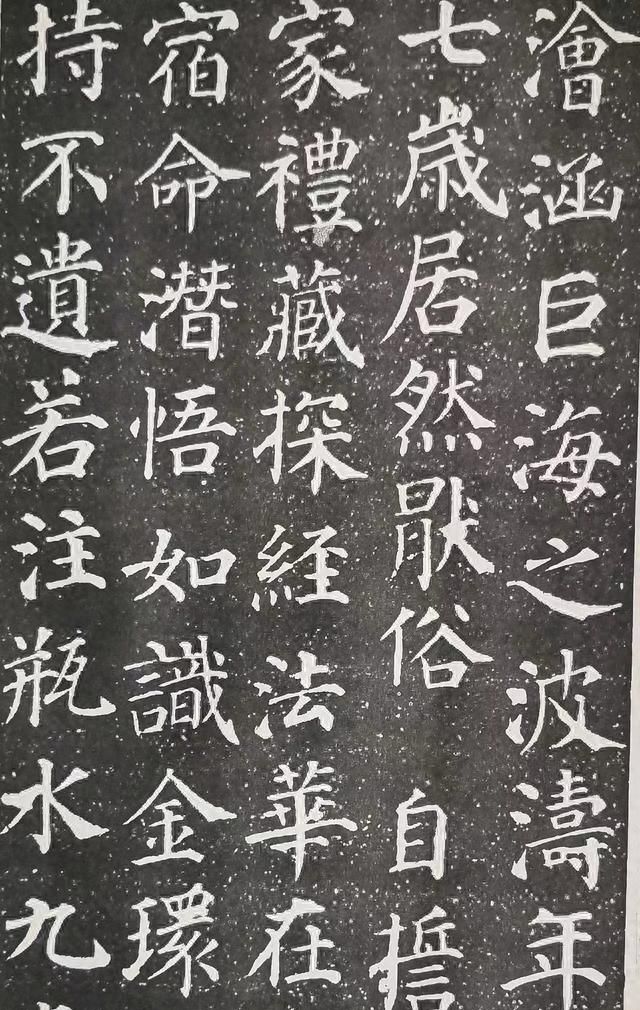 澮涵巨海之波濤年
七歳居然猒俗自誓
家禮藏探経法華在
宿命潛悟如識金環
持不遺若注瓶水九